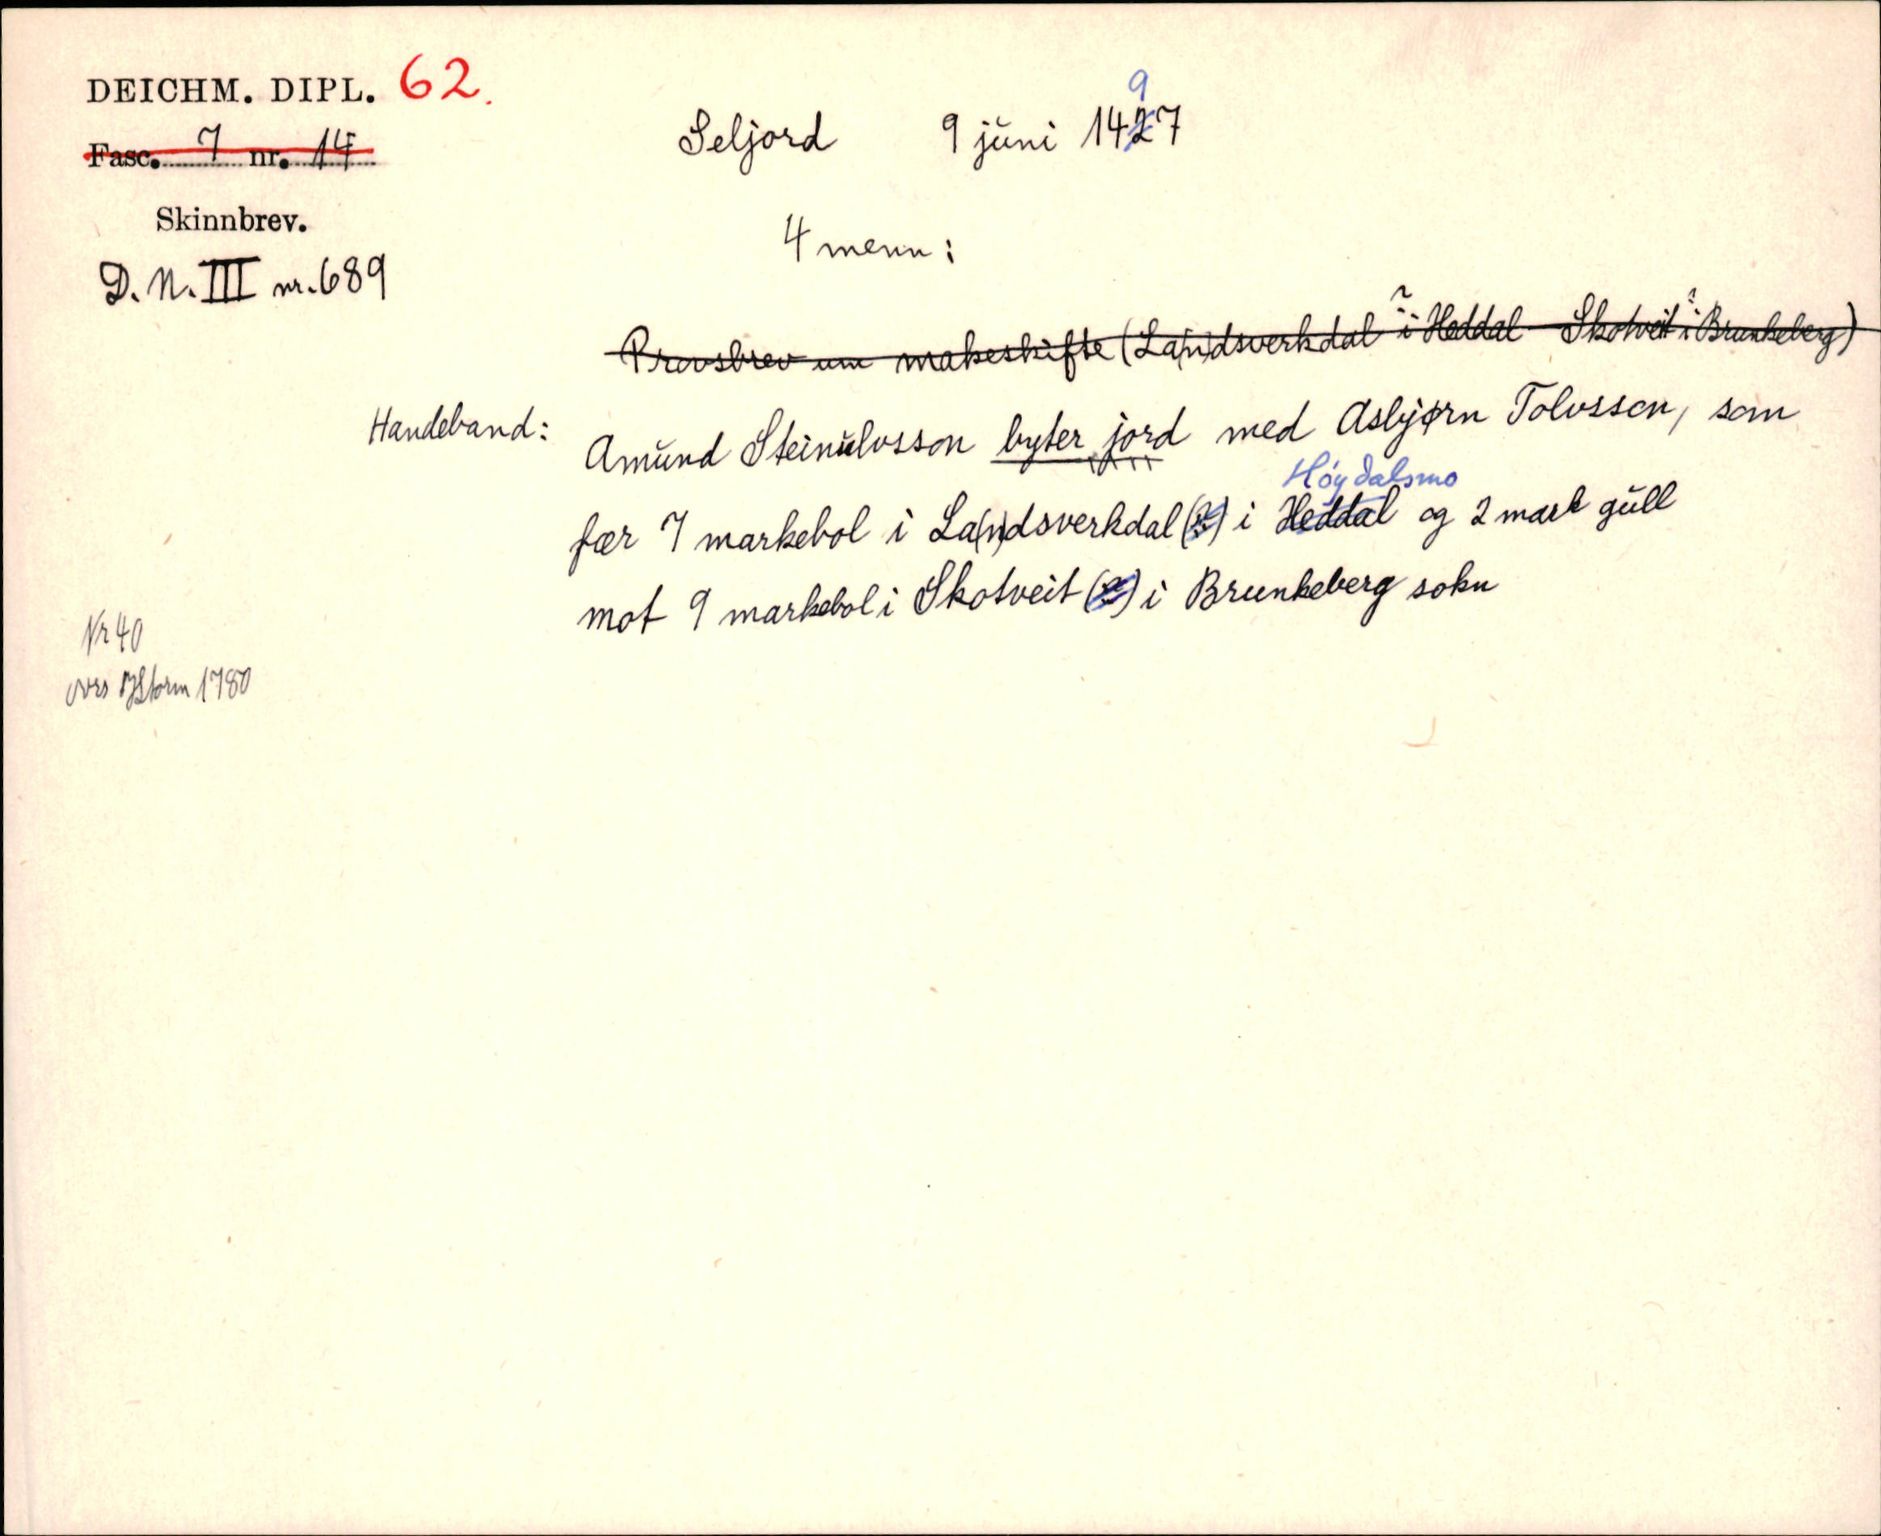 DEICHM. DIPL. 62.
Fasc. 7 nr. 14
Skinnbrev.
D. N. III nr. 689
9
Seljord 9 juni 1427
4 menn:
Provsbrev um makeskifte (La(n)dsverkdal ? i Heddal - Skotveit ? i Brunkeberg)
Handeband: Amund Steinulvsson byter jord med Asbjørn Tolvsson, som
Høydalsmo
fær 7 markebol i La(n)dsverkdal (?) i Heddal og 2 mark gull
mot 9 markebol i Skotveit (?) i Brunkeberg sokn
Nr 40
Storm 1780